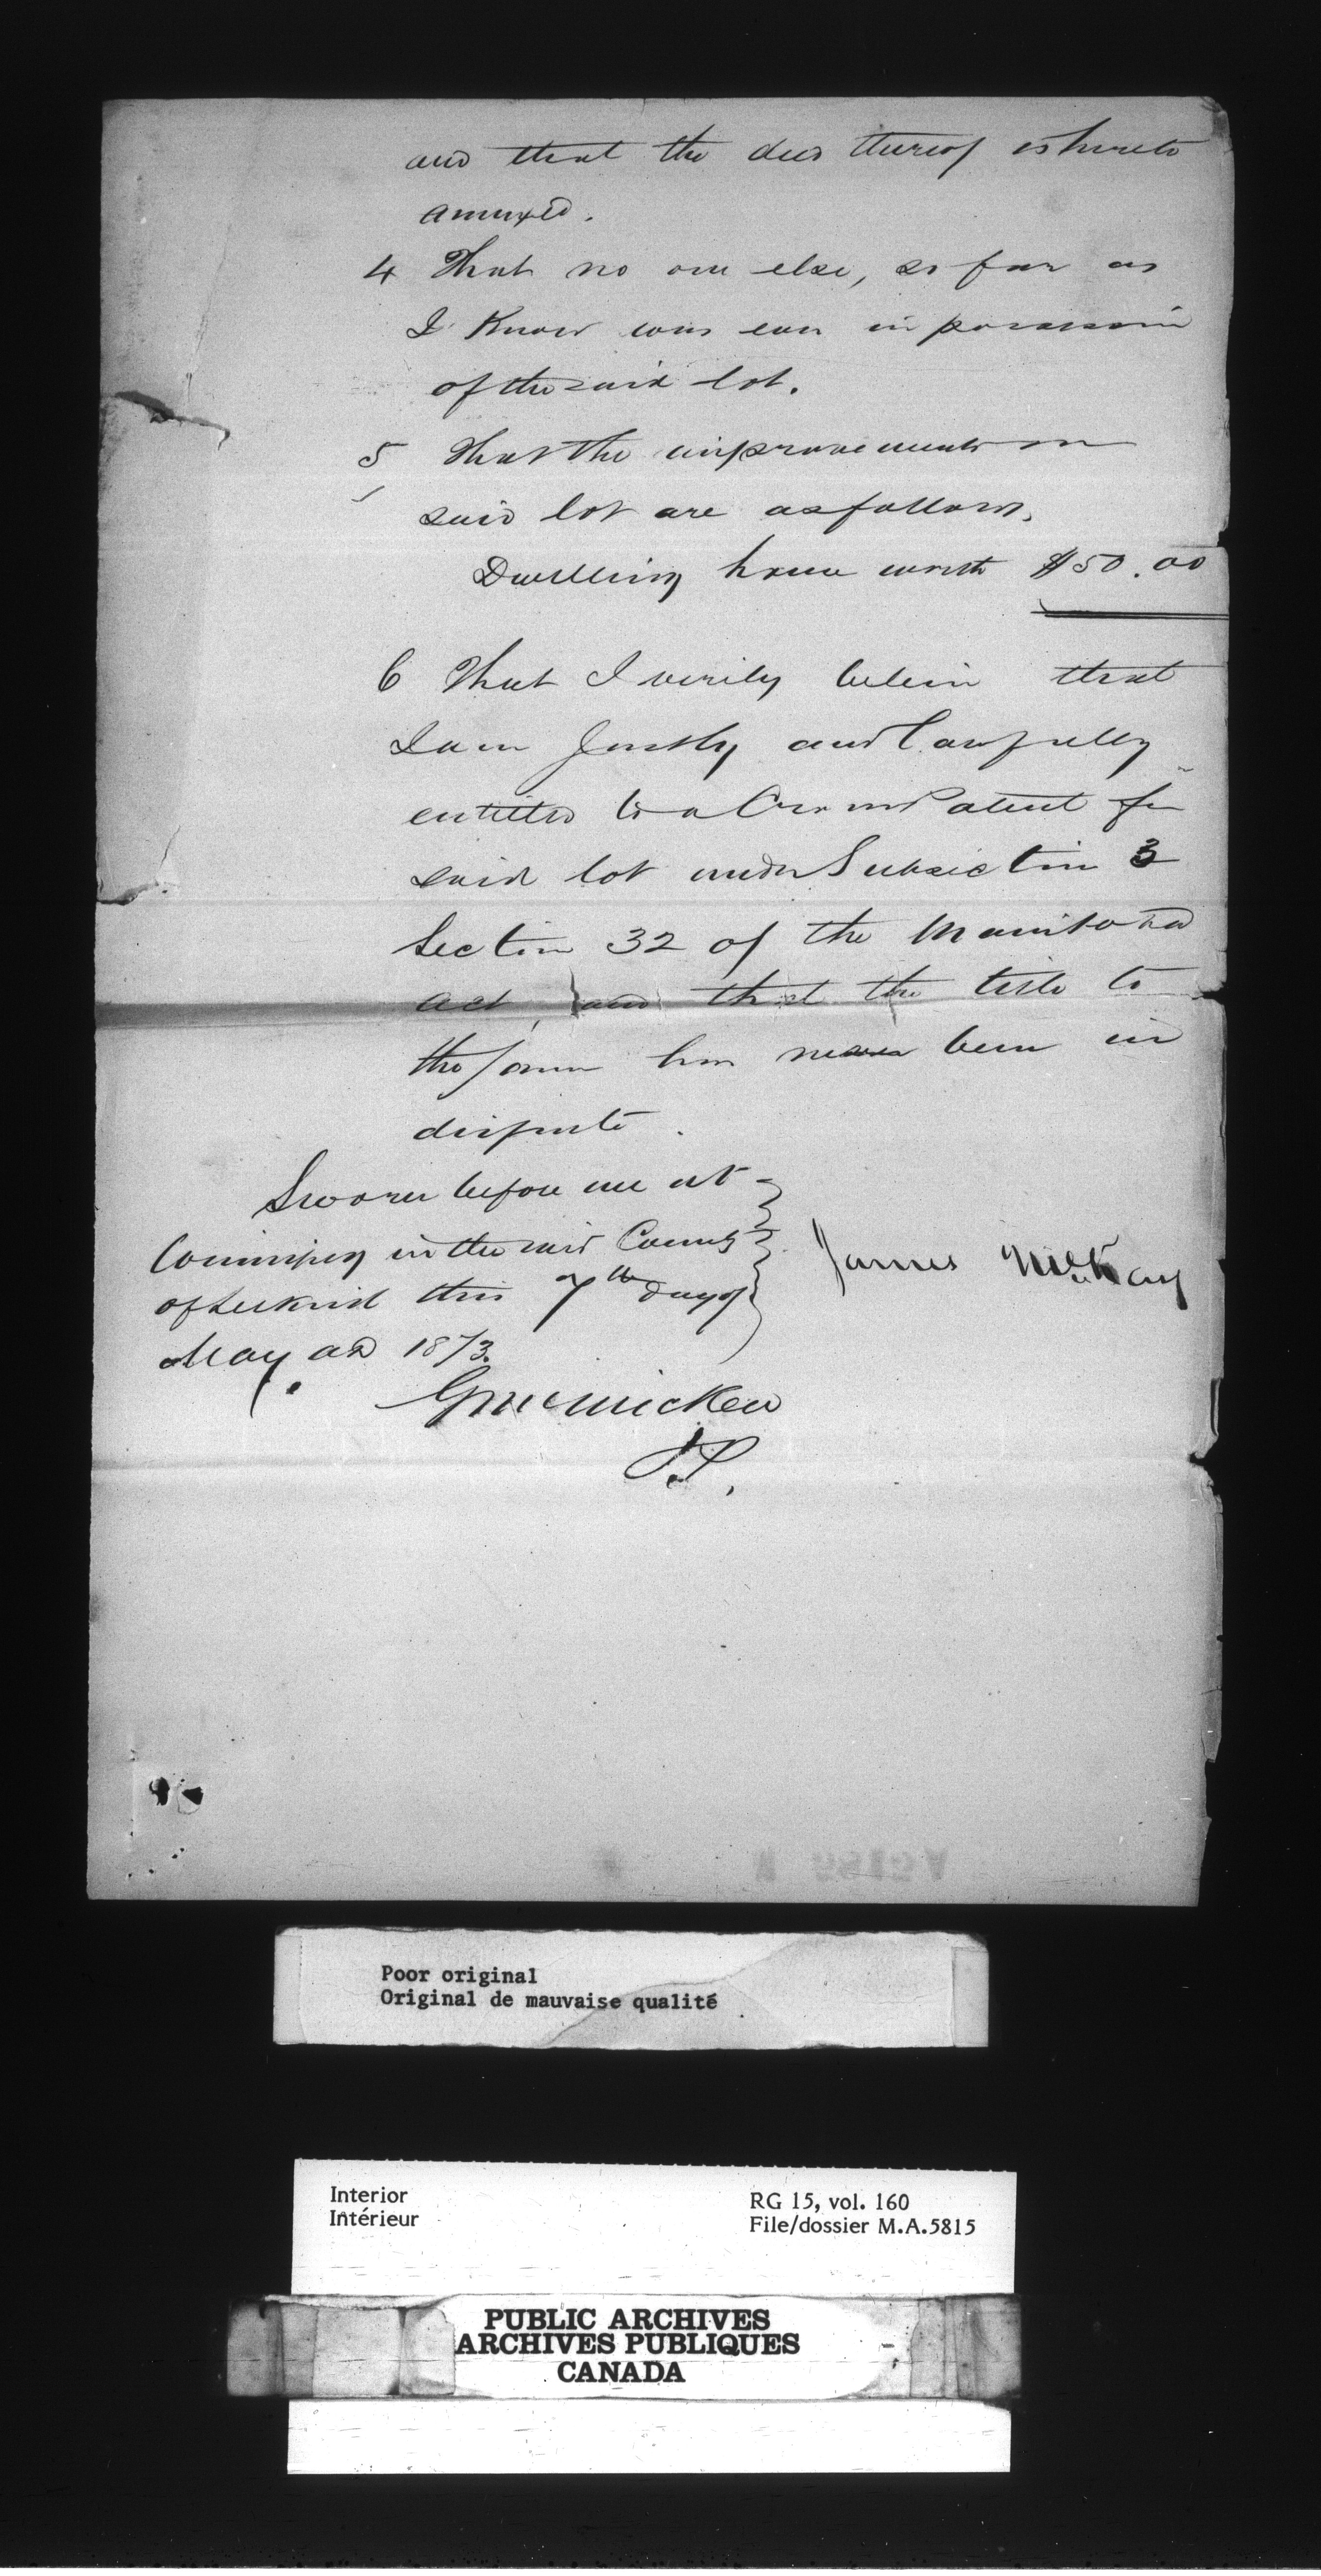 and that the deed thereof is hereto
annexed.
4 That no one else, so far as
I know was ever in possession
of the said lot.
5 That the improvements on
said lot are as follows,
Dwelling house worth $50.00
6 That I verily believe that
I am Justly and Lawfully
entitled to a Crown Patent for
said lot under Subsection 3
Section 32 of the Manitoba
Act, and that the title to
the same has never been in
dispute.
Sworn before me at
Winnipeg in the said County
of Selkirk this 7th day of
May AD 1873.
James McKay
G McMicken
Poor original
Original de mauvaise qualité
Interior
Intérieur
RG 15, vol. 160
File/dossier M.A.5815
PUBLIC ARCHIVES
ARCHIVES PUBLIQUES
CANADA